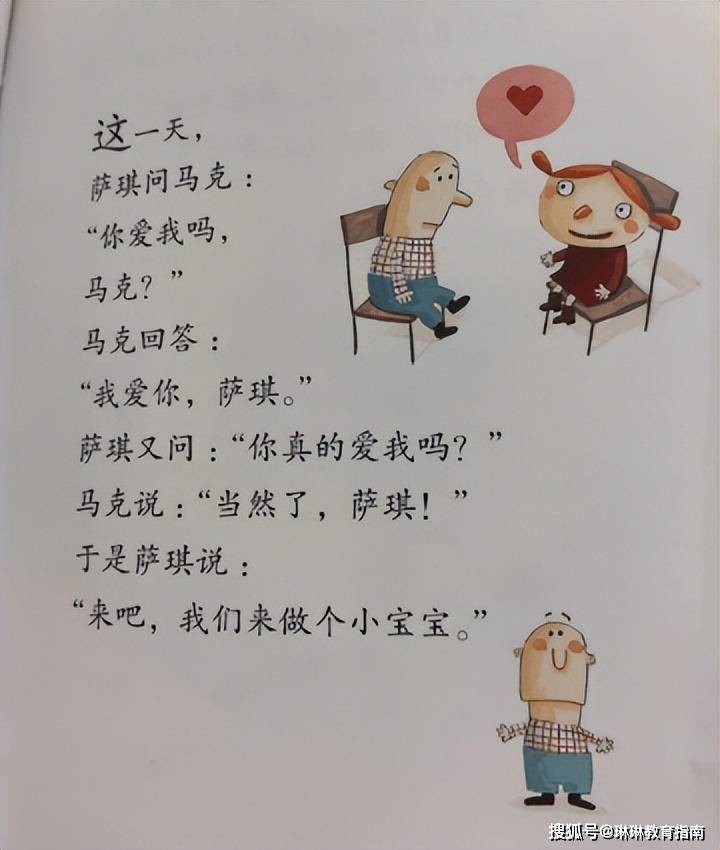 这一天，
萨琪问马克：
“你爱我吗，
马克？”
马克回答：
“我爱你，萨琪。”
萨琪又问：“你真的爱我吗？”
马克说：“当然了，萨琪！”
于是萨琪说：
“来吧，我们来做个小宝宝。”
搜狐号@琳琳教育指南